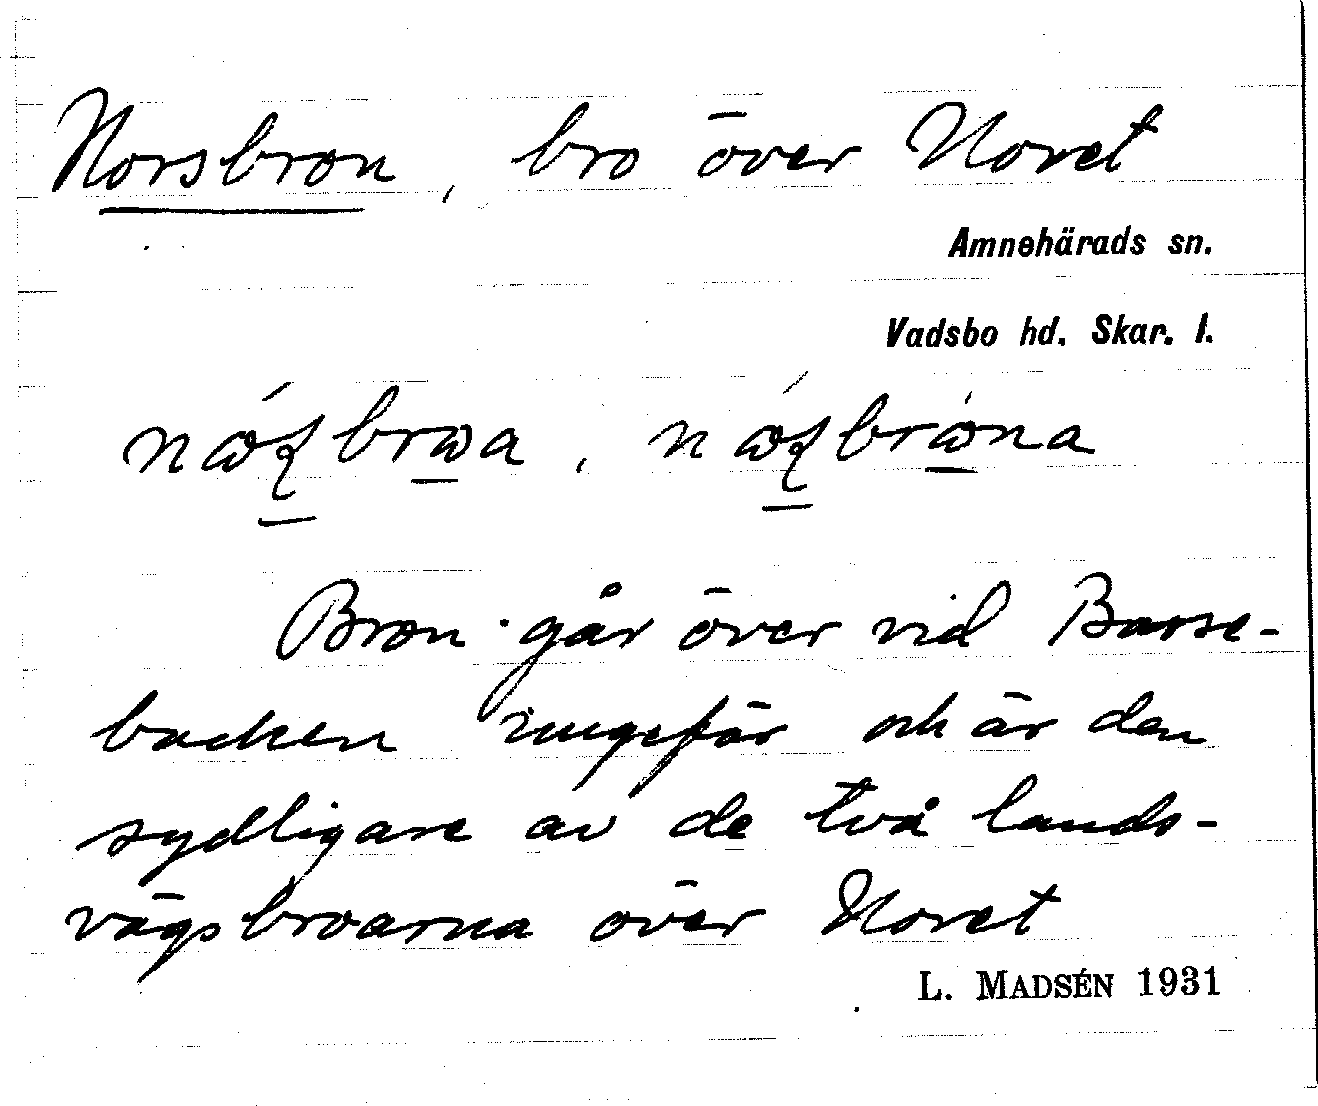 Norsbron, bro över Noret
Amnehärads sn.
Vadsbo hd. Skar. l.
Bron går över vid Basse-
backen ungefär och är den
sydligare av de två lands-
vägsbroarna över Noret
L. MADSÉN 1931